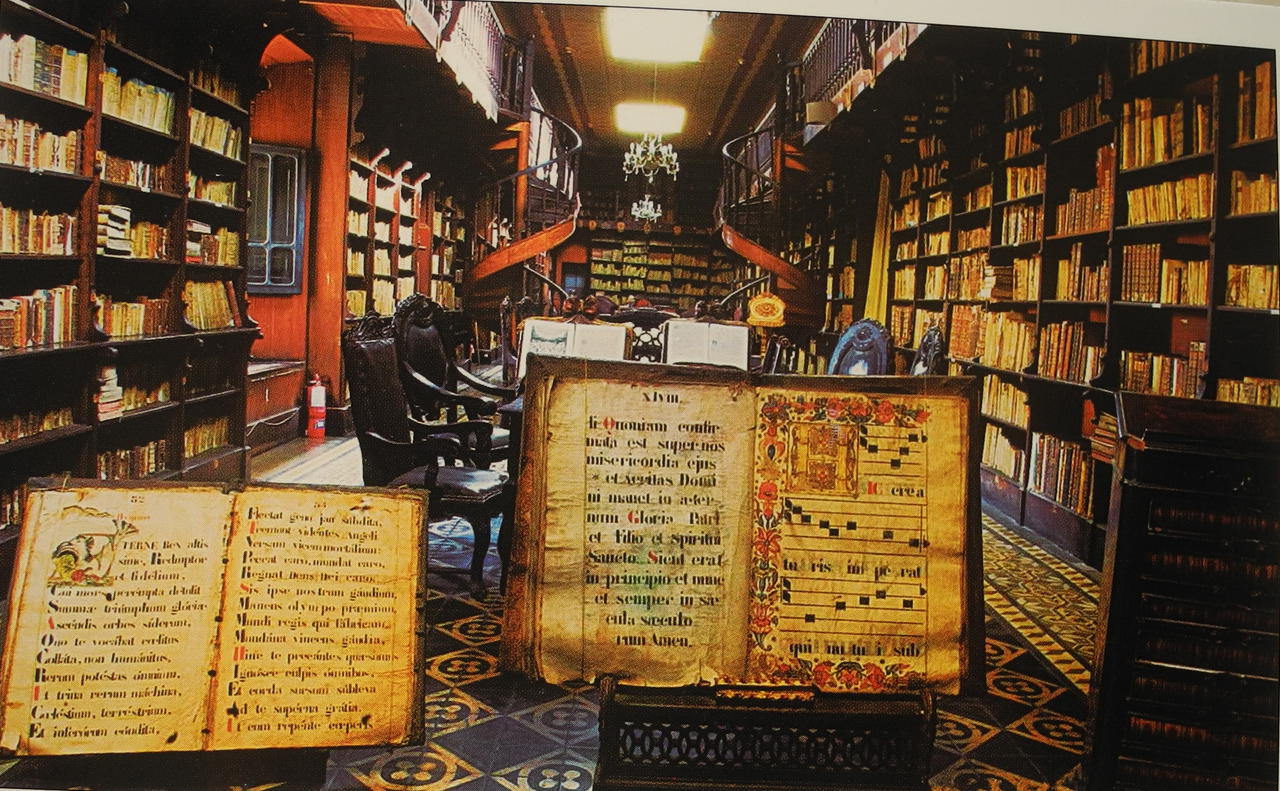 52
TERNE Rex altis
sime, Redemptor
et fidelium,
Cui mors perempta detulit
Summæ triúmphum glóriæ.
Ascéndis orbes síderum,
Quo te vocábat cælitus
Colláta, non humánitus,
Rerum potéstas ómnium,
Ut trina rerum máchina,
Cæléstium, terréstrium,
Et infer­órum cóndita,
Flectat genu jam súbdita,
Tremunt vidéntes Angeli
Versam vicem mortálium:
Peccat caro, mundat caro,
Regnat Deus Dei caro.
Sis ipse nostrum gáudium,
Manens olympo præmium,
Mundi regis qui fábricam,
Mundána vincens gáudia,
Hinc te precántes quæsumus
Ignósce culpis ómnibus,
Et corda sursum súbleva
Ad te supérna grátia.
Ut cum repénte cœperis
xlviii.
di Quoniam confir-
mata est super nos
misericordia ejus
et veritas Domi
ni manet in æter-
num Gloria Patri
et Filio et Spiritui
Sancto. Sicut erat
in principio et nunc
et semper in sæ
cula sæculo
rum Amen.
crea
tu ris im pe rat
qui nu tu i sub